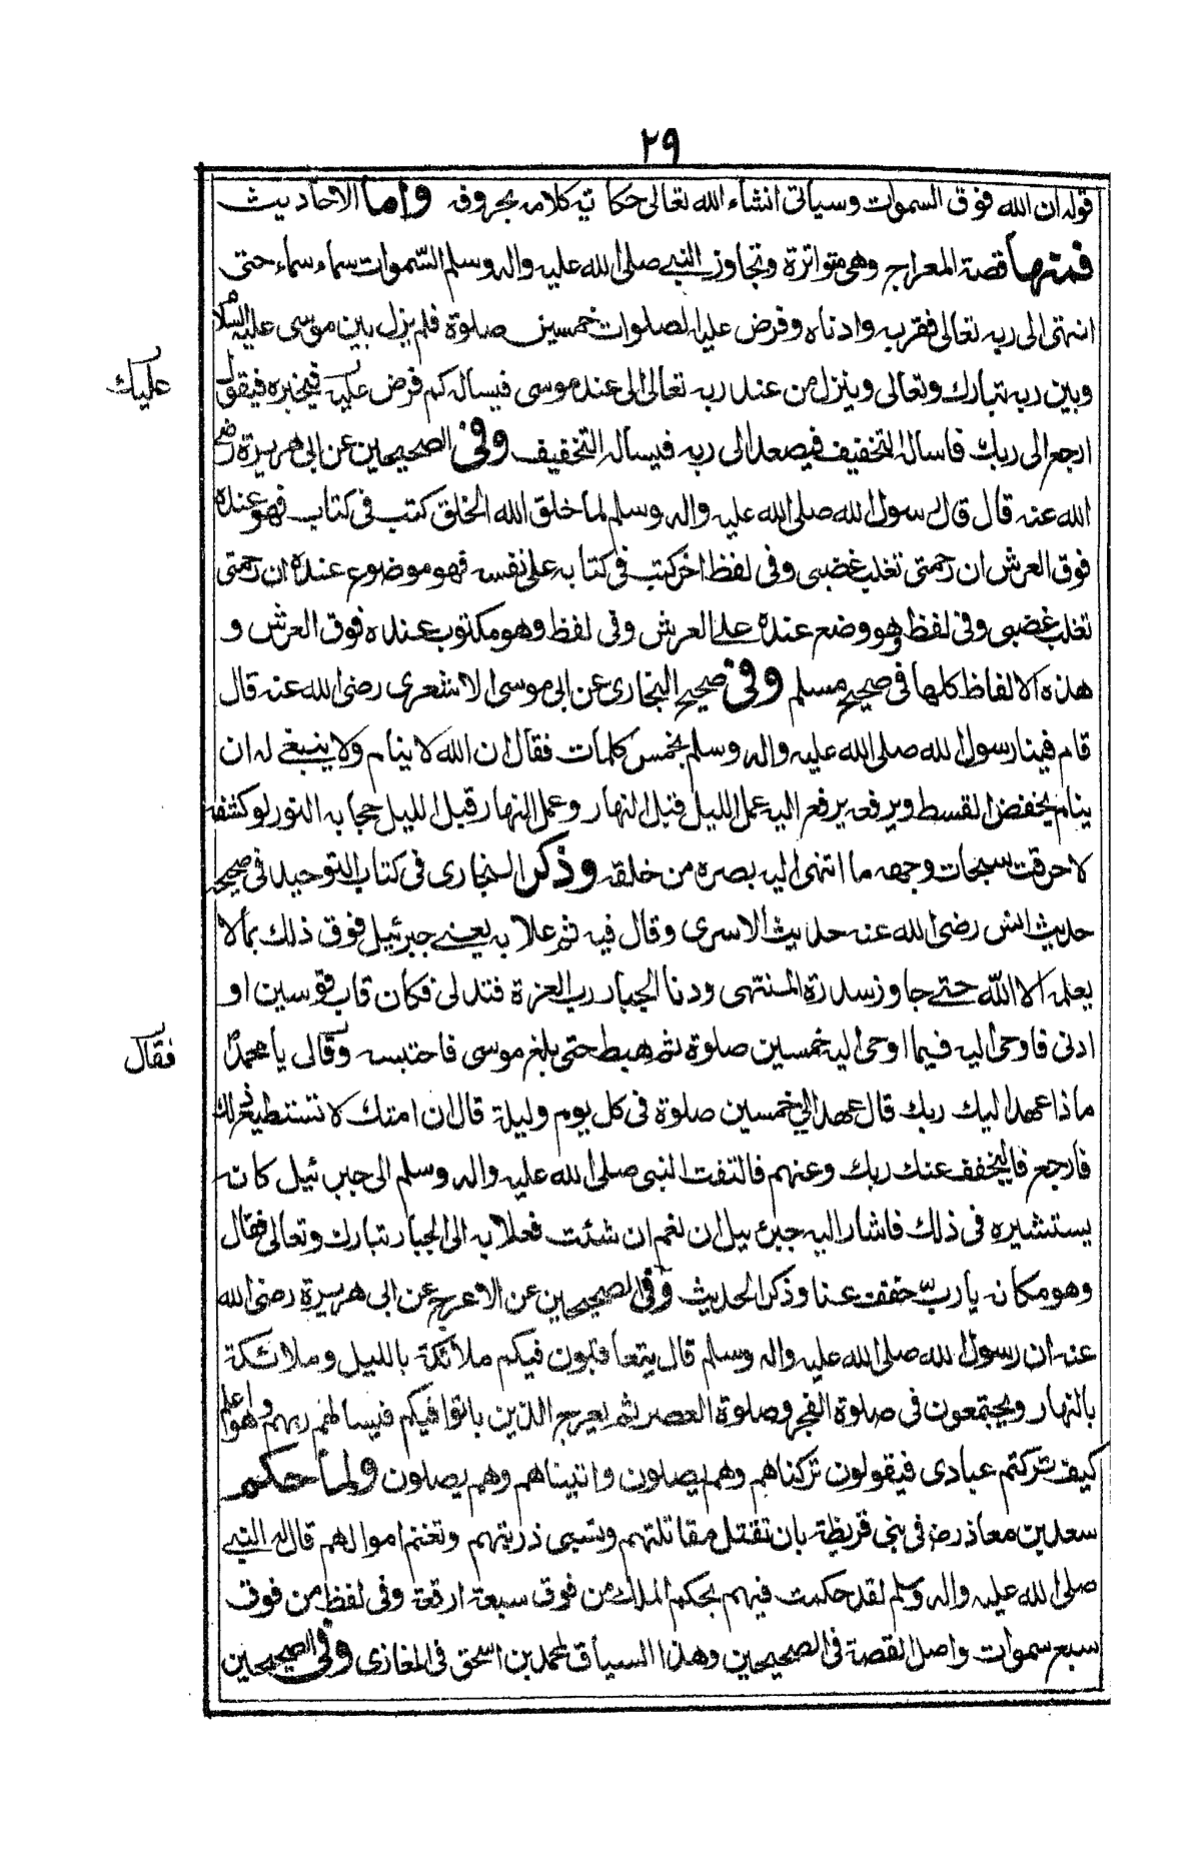 ٢٩
قوله ان الله فوق السموات وسياتى انشاء الله تعالى حكاية كلامه بحروفه واما الاحاديث
فمنها قصة المعراج وهى متواترة وتجاوز النبى صلى الله عليه واله وسلم السموات سماء سماء حتى
انتهى الى ربه تعالى فقربه وادناه وفرض عليه الصلوات خمسين صلوة فلم يزل بين موسى عليه السلام
وبين ربه تبارك وتعالى وينزل من عند ربه تعالى الى عند موسى فيساله كم فرض عليك فيخبره فيقول
عليك
ارجع الى ربك فاساله التخفيف فيصعد الى ربه فيساله التخفيف وفى الصحيحين عن ابى هريرة رضى
الله عنه قال قال رسول الله صلى الله عليه واله وسلم لما خلق الله الخلق كتب فى كتاب فهو عنده
فوق العرش ان رحمتى تغلب غضبى وفى لفظ اخر كتب فى كتابه على نفسه فهو موضوع عنده ان رحمتى
تغلب غضبى وفى لفظ وهو وضع عنده على العرش وفى لفظ وهو مكتوب عنده فوق العرش و
هذه الالفاظ كلها فى صحيح مسلم وفى صحيح البخارى عن ابى موسى الاشعرى رضى الله عنه قال
قام فينا رسول الله صلى الله عليه واله وسلم بخمس كلمات فقال ان الله لا ينام ولا ينبغى له ان
ينام يخفض القسط ويرفعه يرفع اليه عمل الليل قبل النهار وعمل النهار قبل الليل حجابه النور لو كشفه
لاحرقت سبحات وجهه ما انتهى اليه بصره من خلقه وذكر البخارى فى كتاب التوحيد فى صحيحه
حديث انس رضى الله عنه حديث الاسرى وقال فيه ثم علا به يعنى جبرئيل فوق ذلك بما لا
يعلمه الا الله حتى جاوز سدرة المنتهى ودنا الجبار رب العزة فتدلى فكان قاب قوسين او
ادنى فاوحى اليه فيما اوحى اليه خمسين صلوة ثم هبط حتى بلغ موسى فاحتبسه وقال يا محمد
فقال
ماذا عهد اليك ربك قال عهد الى خمسين صلوة فى كل يوم وليلة قال ان امتك لا تستطيع ذلك
فارجع فاليخفف عنك ربك وعنهم فالتفت النبى صلى الله عليه واله وسلم الى جبرئيل كانه
يستشيره فى ذلك فاشار اليه جبرئيل ان نعم ان شئت فعلا به الى الجبار تبارك وتعالى فقال
وهو مكانه يا رب خفف عنا وذكر الحديث وفى الصحيحين عن الاعرج عن ابى هريرة رضى الله
عنه ان رسول الله صلى الله عليه واله وسلم قال يتعاقبون فيكم ملائكة بالليل وملائكة
بالنهار ويجتمعون فى صلوة الفجر وصلوة العصر ثم يعرج الذين باتوا فيكم فيسالهم ربهم وهو اعلم
كيف تركتم عبادى فيقولون تركناهم وهم يصلون واتيناهم وهم يصلون ولما حكم
سعد بن معاذ رض فى بنى قريظة بان تقتل مقاتلتهم وتسبى ذريتهم وتغنم اموالهم قال له النبى
صلى الله عليه واله وسلم لقد حكمت فيهم بحكم الملك من فوق سبعة ارقعة وفى لفظ من فوق
سبع سموات واصل القصة فى الصحيحين وهذا السياق لمحمد بن اسحق فى المغازى وفى الصحيحين